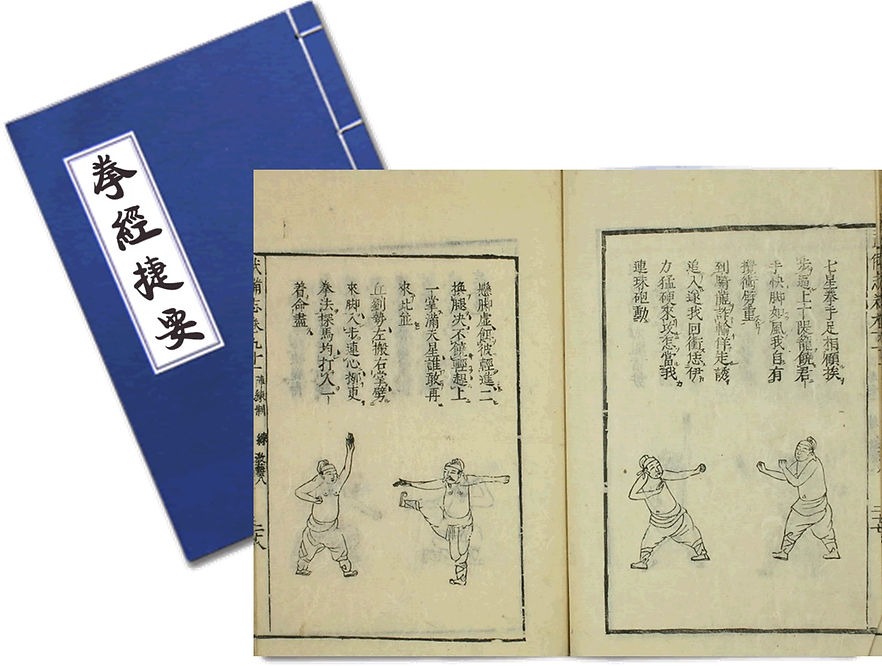 拳經捷要
七星拳手足相顧挨
步逼上下隄籠饒君
手快脚如風我自有
攪衝劈重
倒騎龍詐輸佯走誘
追入遂我回衝恁伊
力猛硬來攻怎當我
連珠砲動
懸脚虛餌彼輕進二
換腿决不饒輕赶上
一掌滿天星誰敢再
來比並
丘劉勢左搬右掌劈
來脚入步連心挪更
拳法探馬均打人一
着命盡
武備志卷九十一 陣練制 練 教藝八 二十八